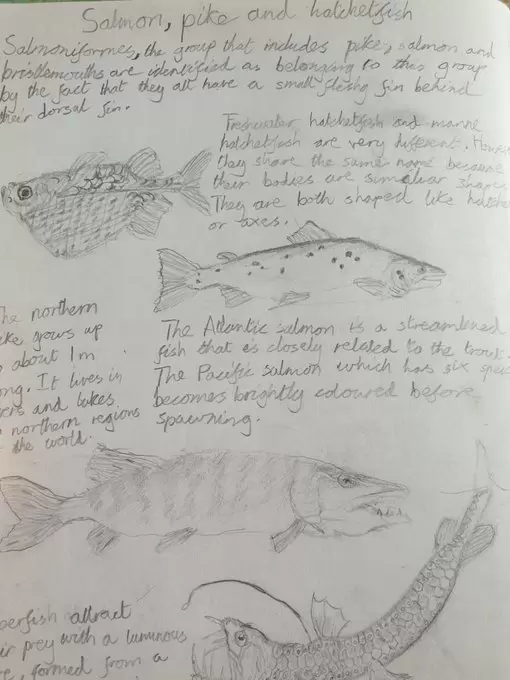 Salmon, pike and hatchetfish
Salmoniformes, the group that includes pike, salmon and
bristlemouths are identified as belonging to this group
by the fact that they all have a small fleshy fin behind
their dorsal fin.
Freshwater hatchetfish and marine
hatchetfish are very different. Howev
they share the same name because
their bodies are similar shape
They are both shaped like hatche
or axes.
The northern
ike grows up
about 1m
ong. It lives in
and lakes
northern regions
the world.
The Atlantic salmon is a streamlined
fish that is closely related to the trout.
The Pacific salmon which has six spec
becomes brightly coloured before
spawning.
perfish attract
ir prey with a luminous
re, formed from a